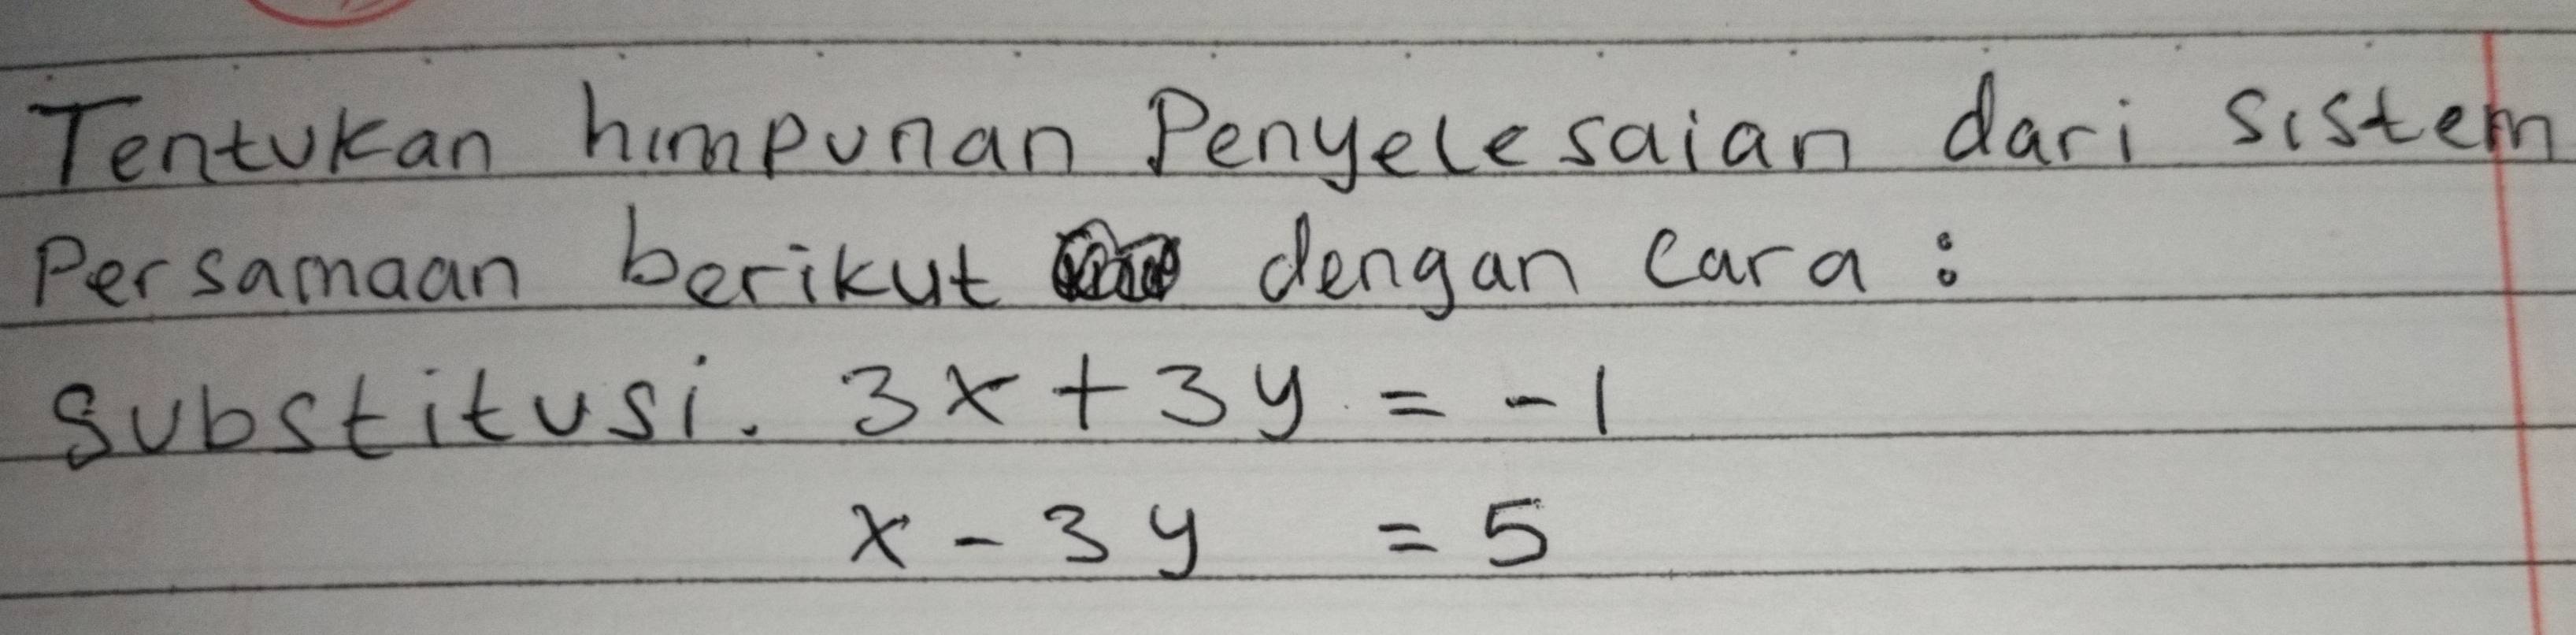 Tentukan himpunan Penyelesaian dari sistem
Persamaan berikut dengan cara :
Substitusi. 3x + 3y = -1
x - 3y = 5